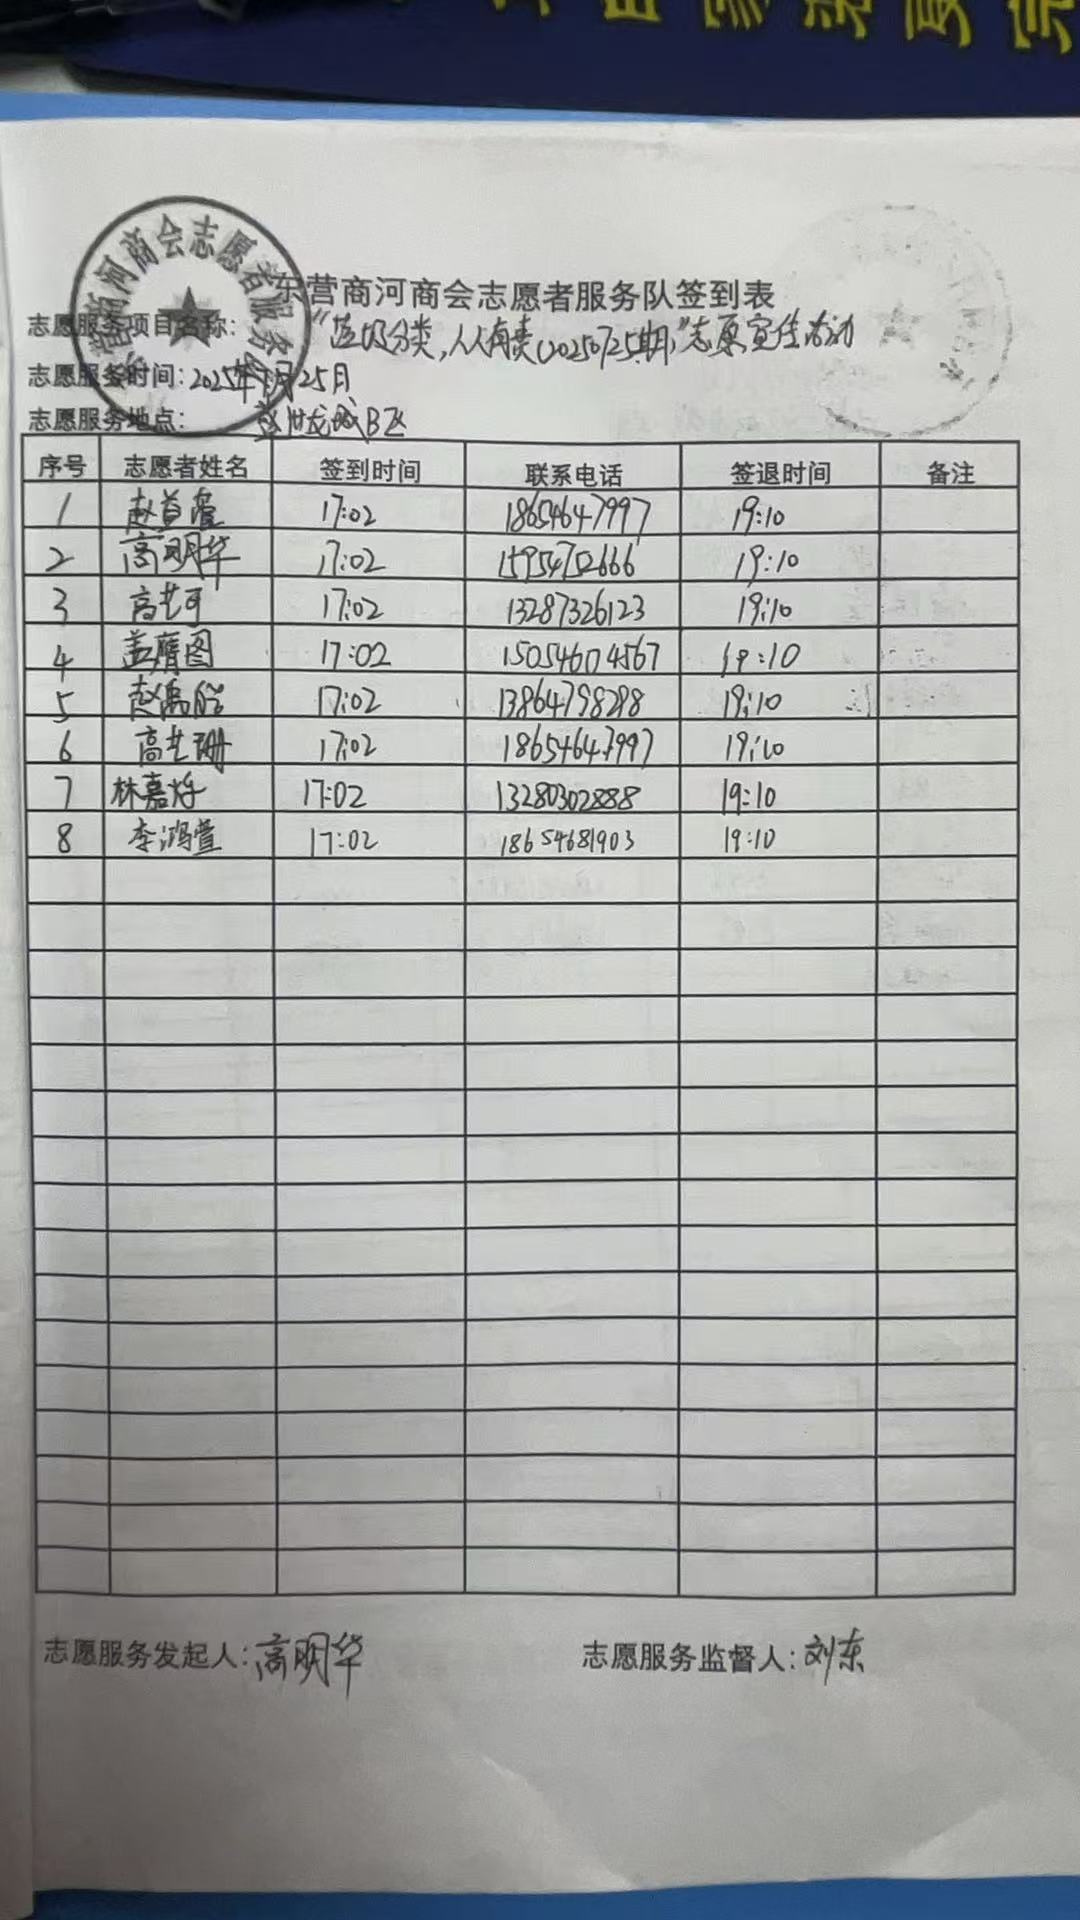 东营商河商会志愿者服务队签到表
志愿服务项目名称：“垃圾分类，人人有责（20250725期）”志愿宣传活动
志愿服务时间：2025年7月25日
志愿服务地点：龙城B区
序号 志愿者姓名 签到时间 联系电话 签退时间 备注
1 赵首萱 17:02 18654647997 19:10
2 高明华 17:02 15954752666 19:10
3 高艺可 17:02 13287326123 19:10
4 盖膺图 17:02 15054604567 19:10
5 赵 17:02 13864798298 19:10
6 高艺珊 17:02 18654647997 19:10
7 林嘉烨 17:02 13280302888 19:10
8 李鸿萱 17:02 18654681903 19:10
志愿服务发起人：高明华 志愿服务监督人：刘东